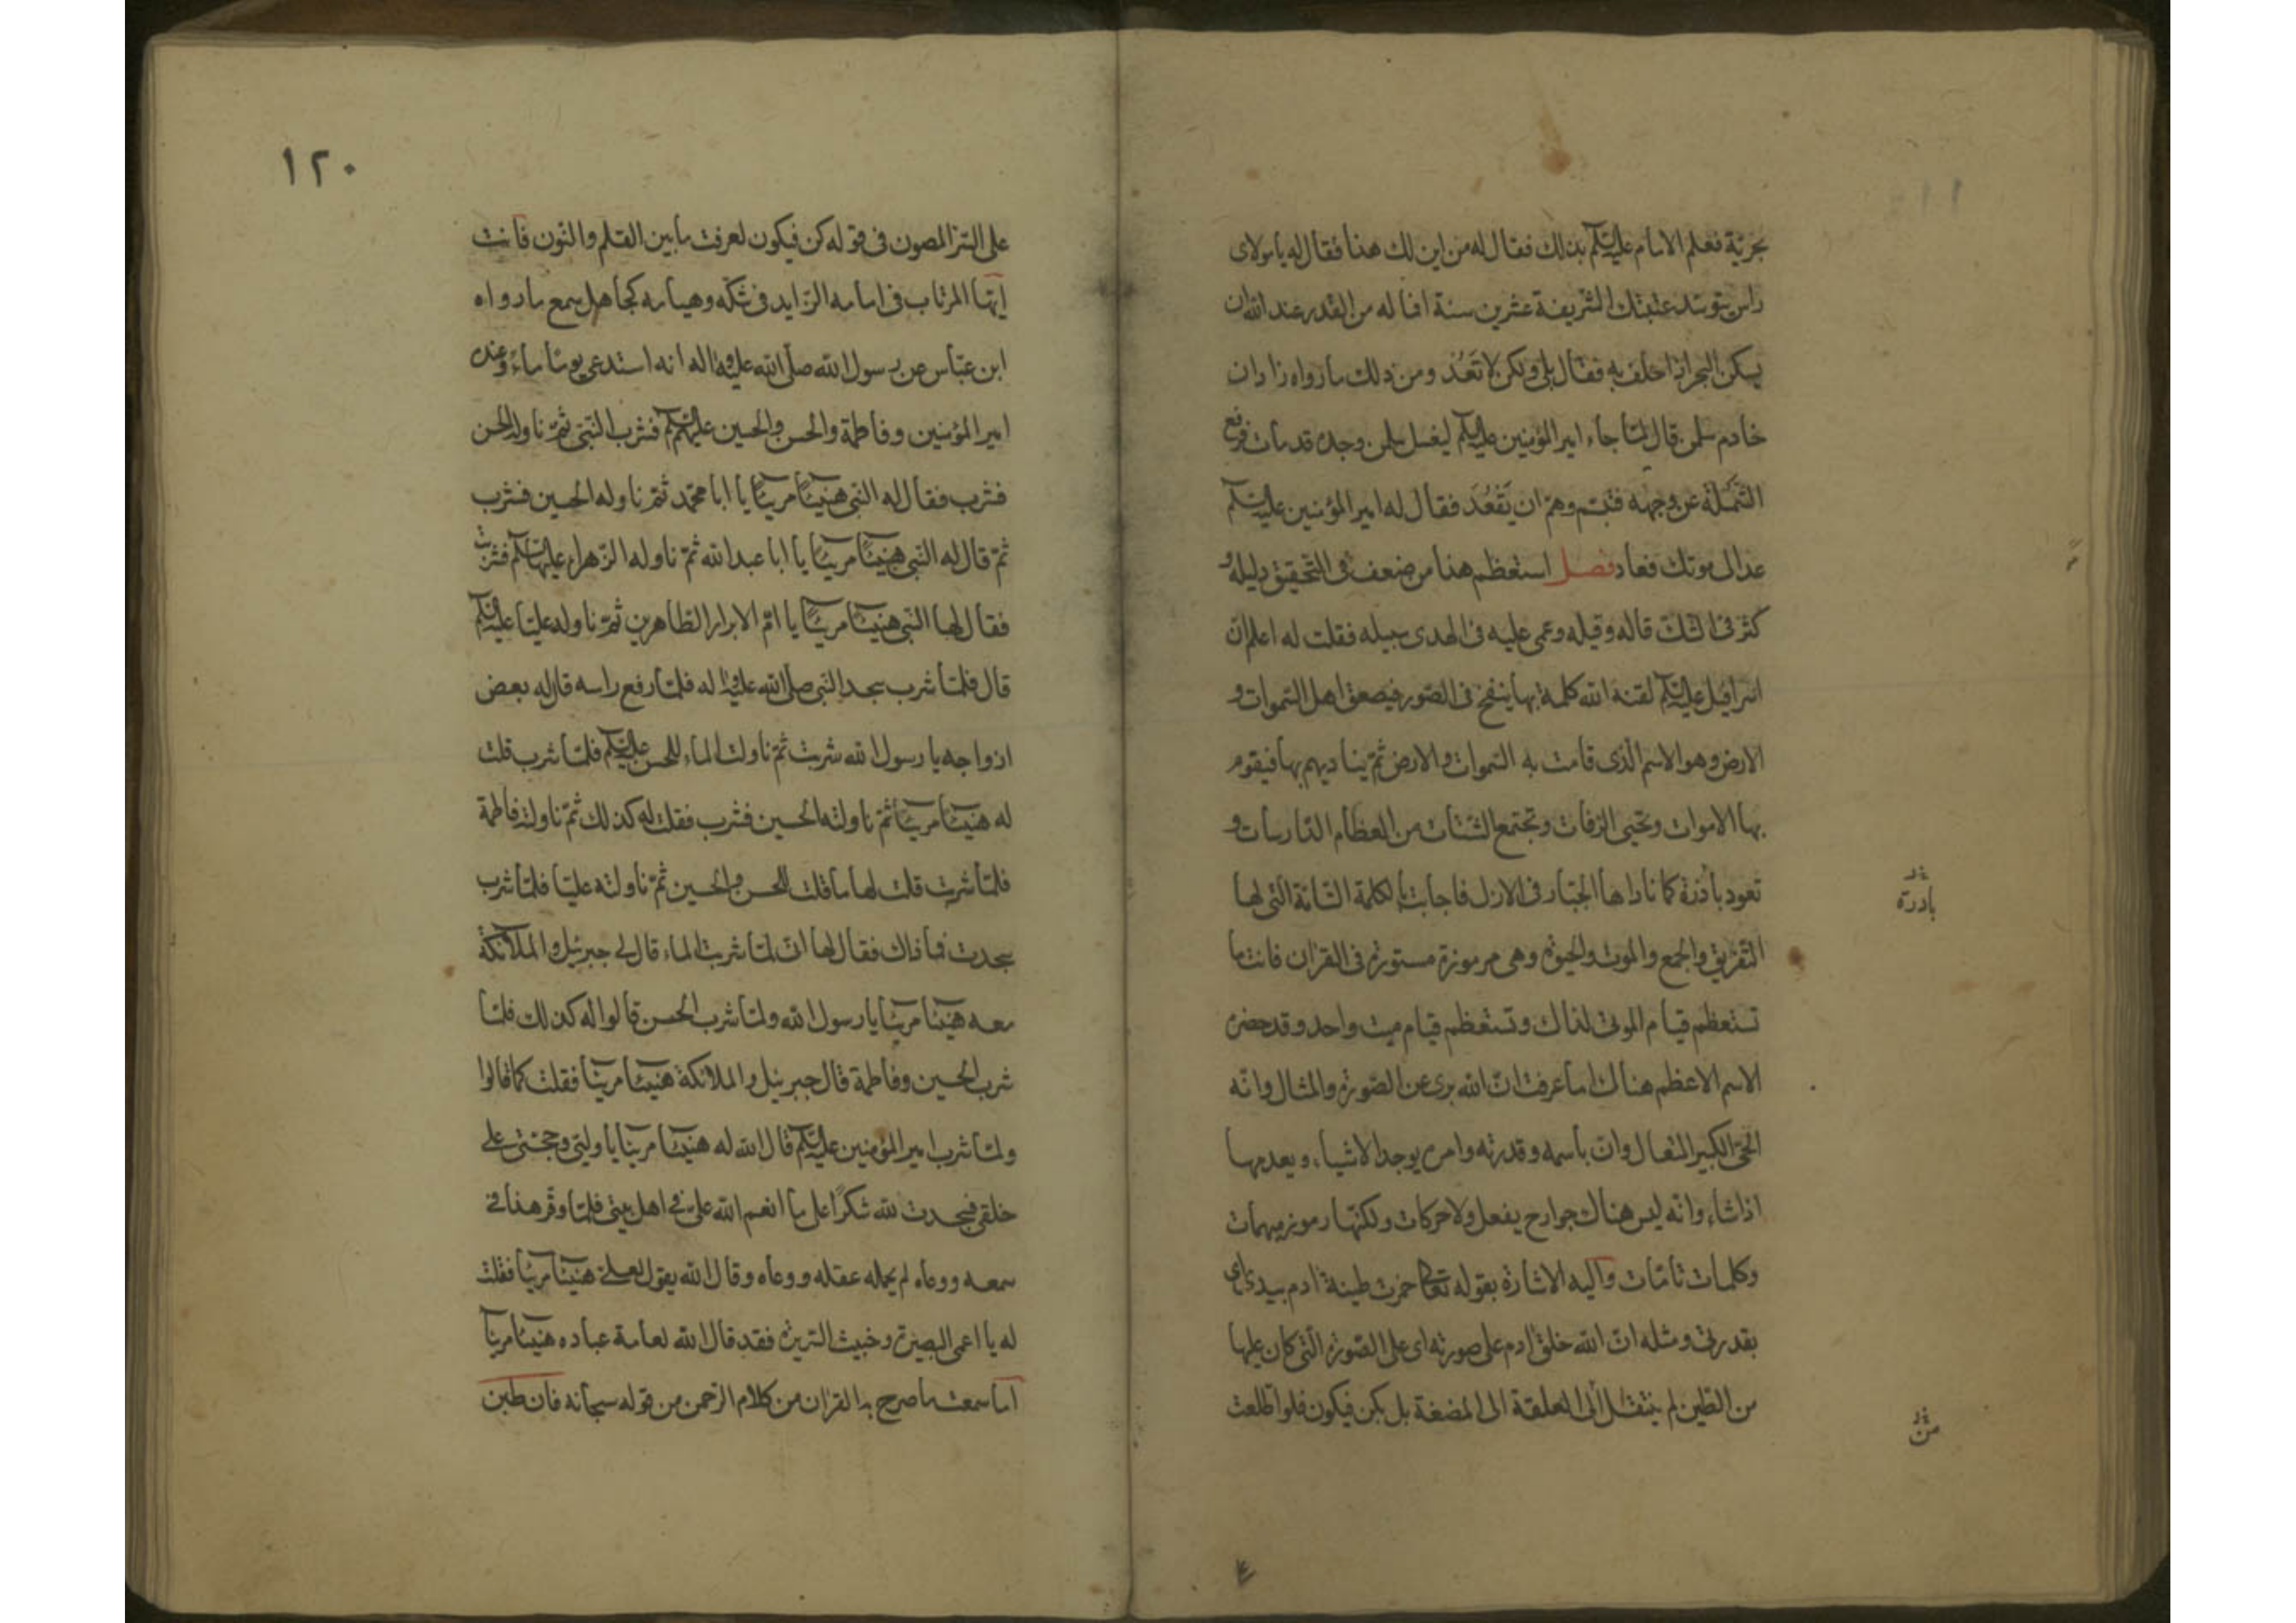 بحريّة فعلم الامام عليه السلم بذلك فقال له من اين لك هذا فقال له يا مولاى
راس يتوسّد عتبتك الشريفة عشرين سنة افما له من القدر عند الله ان
يسكن البحر اذا حلف به فقال بلى ولكن لا تَعُد ومن ذلك ما رواه زاذان
خادم سلمن قال لمّا جاء امير المؤمنين عليه السلم ليغسل سلمن وجده قد مات فرفع
الشملة عن وجهه فتبسّم وهمّ ان يَقْعُدَ فقال له امير المؤمنين عليه السلم
عد الى موتك فعاد فصل استعظم هذا من ضعف فى التحقيق دليله و
كثر فى الشكّ قاله وقيله وعمى عليه فى الهدى سبيله فقلت له اعلم انّ
اسرافيل عليه السلم لقنه الله كلمة بها ينفخ فى الصّور فيصعق اهل السّموات و
الارض وهو الاسم الّذى قامت به السّموات والارض ثمّ يناديهم بها فيقوم
بها الاموات وتحيى الرّفات وتجتمع الشّتات من العظام الدّارسات و
تعود بادرة كما ناداها الجبّار فى الازل فاجابت بالكلمة التّامّة الّتى لها
التّفريق والجمع والموت والحيوة وهى مرموزة مستورة فى القرآن فانت ما
تستعظم قيام الموتى لذاك وتستعظم قيام ميّت واحد وقد حضره
الاسم الاعظم هناك اما عرفت انّ الله برى عن الصّورة والمثال وانّه
الحىّ الكبير المتعال وانّ باسمه وقدرته وامره يوجد الاشياء ويعدمها
اذا شاء وانّه ليس هناك جوارح يفعل ولا حركات ولكنّها رموز مبهمات
وكلمات تامّات واليه الاشارة بقوله تعالى خمرت طينة ادم بيدى اى
بقدرتى ومثله انّ الله خلق ادم على صورته اى على الصّورة الّتى كان عليها
من الطّين لم ينتقل الى العلقة الى المضغة بل بكن فيكون فلو اطّلعت
بادرة
من
١٢٠
على السّرّ المصون فى قوله كن فيكون لعرفت ما بين القلم والنّون فانت
ايّها المرتاب فى امامه الزّايد فى شكّه وهيامه كجاهل سمع ما رواه
ابن عبّاس عن رسول الله صلّى الله عليه واله انه استدعى يوما ماءً وعنده
امير المؤمنين وفاطمة والحسن والحسين عليهم السلم فشرب النّبى ثمّ ناوله الحسن
فشرب فقال له النبى هنيئا مريئا يا ابا محمّد ثمّ ناوله الحسين فشرب
ثمّ قال له النّبى هنيئا مريئا يا ابا عبد الله ثمّ ناوله الزّهراء عليها السلم فشربت
فقال لها النّبى هنيئا مريئا يا امّ الابرار الطّاهرين ثمّ ناوله عليّا عليه السلم
قال فلمّا شرب سجد النّبى صلّى الله عليه واله فلمّا رفع راسه قال له بعض
ازواجه يا رسول الله شربت ثمّ ناولت الماء للحسن عليه السلم فلمّا شرب قلت
له هنيئا مريئا ثمّ ناولته الحسين فشرب فقلت له كذلك ثمّ ناولته فاطمة
فلمّا شربت قلت لها ما قلت للحسن والحسين ثمّ ناولته عليّا فلمّا شرب
سجدت فما ذاك فقال لها انّى لمّا شربت الماء قال لى جبرئيل والملائكة
معه هنيئا مريئا يا رسول الله ولمّا شرب الحسن قالوا له كذلك فلمّا
شرب الحسين وفاطمة قال جبرئيل والملائكة هنيئا مريئا فقلت كما قالوا
ولمّا شرب امير المؤمنين عليه السلم قال الله له هنيئا مريئا يا وليّى وحجّتى على
خلقى فسجدت لله شكرًا على ما انعم الله علىّ فى اهل بيتى فلمّا وقر هذا فى
سمعه ووعاه لم يحمله عقله ووعاه وقال الله يقول لعلى هنيئا مريئا فقلت
له يا اعمى البصيرة وخبيث السّريرة فقد قال الله لعامة عباده هنيئا مريئا
اما سمعت ما صرح به القرآن من كلام الرّحمن من قوله سبحانه فان طبن